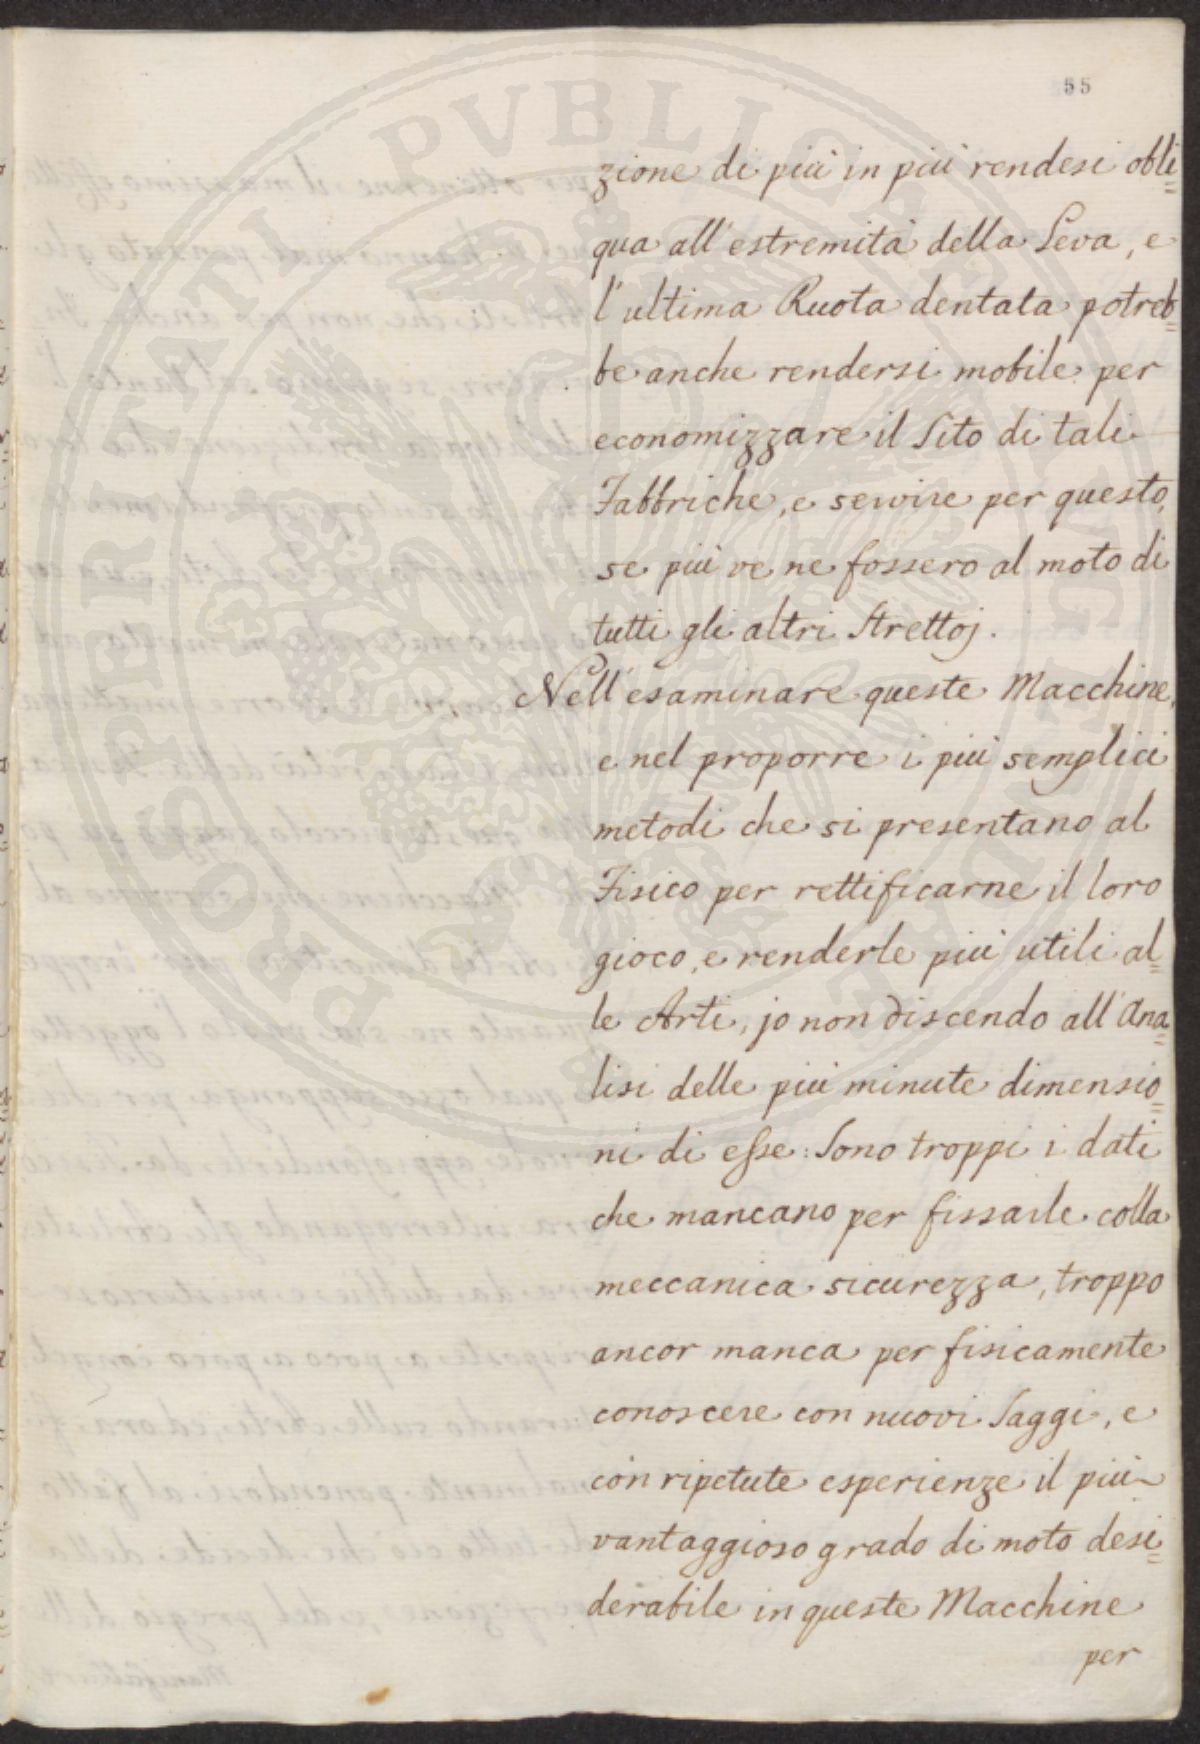 55
zione di più in più rendesi obli=
qua all'estremità della Leva, e
l'ultima Ruota dentata potreb=
be anche rendersi mobile per
economizzare il Sito di tali
Fabbriche, e servire per questo,
se più ve ne fossero al moto di
tutti gli altri Strettoj.
Nell'esaminare queste Macchine,
e nel proporre i più semplici
metodi che si presentano al
Fisico per rettificarne il loro
gioco, e renderle più utili al=
le Arti, jo non discendo all'Ana=
lisi delle più minute dimensio=
ni di esse: Sono troppi i dati
che mancano per fissarle colla
meccanica sicurezza, troppo
ancor manca per fisicamente
conoscere con nuovi Saggi, e
con ripetute esperienze il più
vantaggioso grado di moto desi=
derabile in queste Macchine
per
PROSPERITATI PVBLICAE AVGENDAE